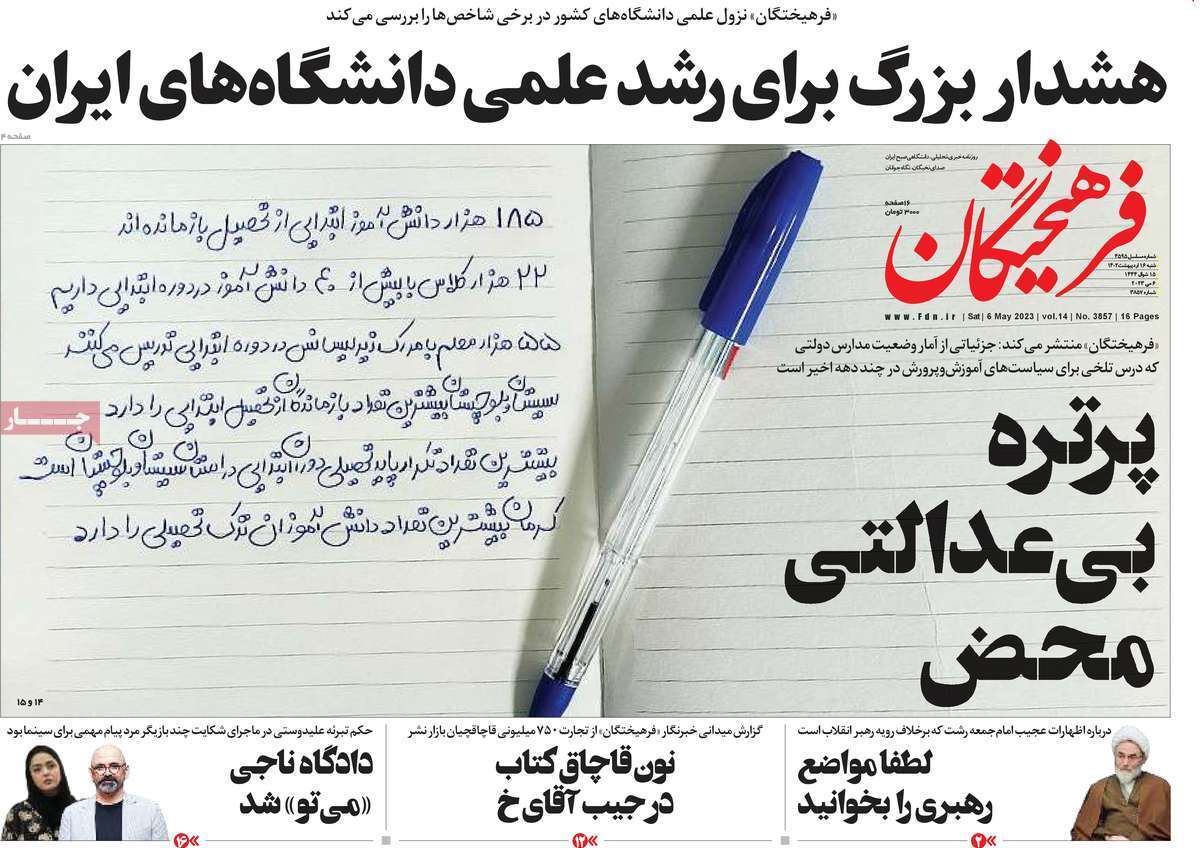 «فرهیختگان» نزول علمی دانشگاه‌های کشور در برخی شاخص‌ها را بررسی می‌کند
هشدار بزرگ برای رشد علمی دانشگاه‌های ایران
صفحه ۴
روزنامه خبری تحلیلی، دانشگاهی صبح ایران
صدای نخبگان، نگاه جوانان
فرهیختگان
۱۶ صفحه
۳۰۰۰ تومان
شماره مسلسل ۴۵۹۵
شنبه ۱۶ اردیبهشت ۱۴۰۲
۱۵ شوال ۱۴۴۴
۶ می ۲۰۲۳
شماره ۳۸۵۷
www.Fdn.ir | Sat| 6 May 2023 | vol.14 | No. 3857 | 16 Pages
«فرهیختگان» منتشر می‌کند: جزئیاتی از آمار وضعیت مدارس دولتی
که درس تلخی برای سیاست‌های آموزش‌وپرورش در چند دهه اخیر است
پرتره
بی‌عدالتی
محض
۱۸۵ هزار دانش آموز ابتدایی از تحصیل بازمانده‌اند
۲۲ هزار کلاس با بیش از ۴۰ دانش آموز در دوره ابتدایی داریم
۵۵ هزار معلم با مدرک زیر لیسانس در دوره ابتدایی تدریس می‌کنند
سیستان و بلوچستان بیشترین تعداد بازماندگان از تحصیل ابتدایی را دارد
بیشترین تعداد تکرار پایه تحصیلی دوران ابتدایی در استان سیستان و بلوچستان است
کرمان بیشترین تعداد دانش آموزان ترک تحصیلی را دارد
جار
۱۴ و ۱۵
درباره اظهارات عجیب امام‌جمعه رشت که برخلاف رویه رهبر انقلاب است
لطفا مواضع
رهبری را بخوانید
۲
گزارش میدانی خبرنگار «فرهیختگان» از تجارت ۷۵۰ میلیونی قاچاقچیان بازار نشر
نون قاچاق کتاب
در جیب آقای خ
۱۲
حکم تبرئه علیدوستی در ماجرای شکایت چند بازیگر مرد پیام مهمی برای سینما بود
دادگاه ناجی
«می‌تو» شد
۱۶